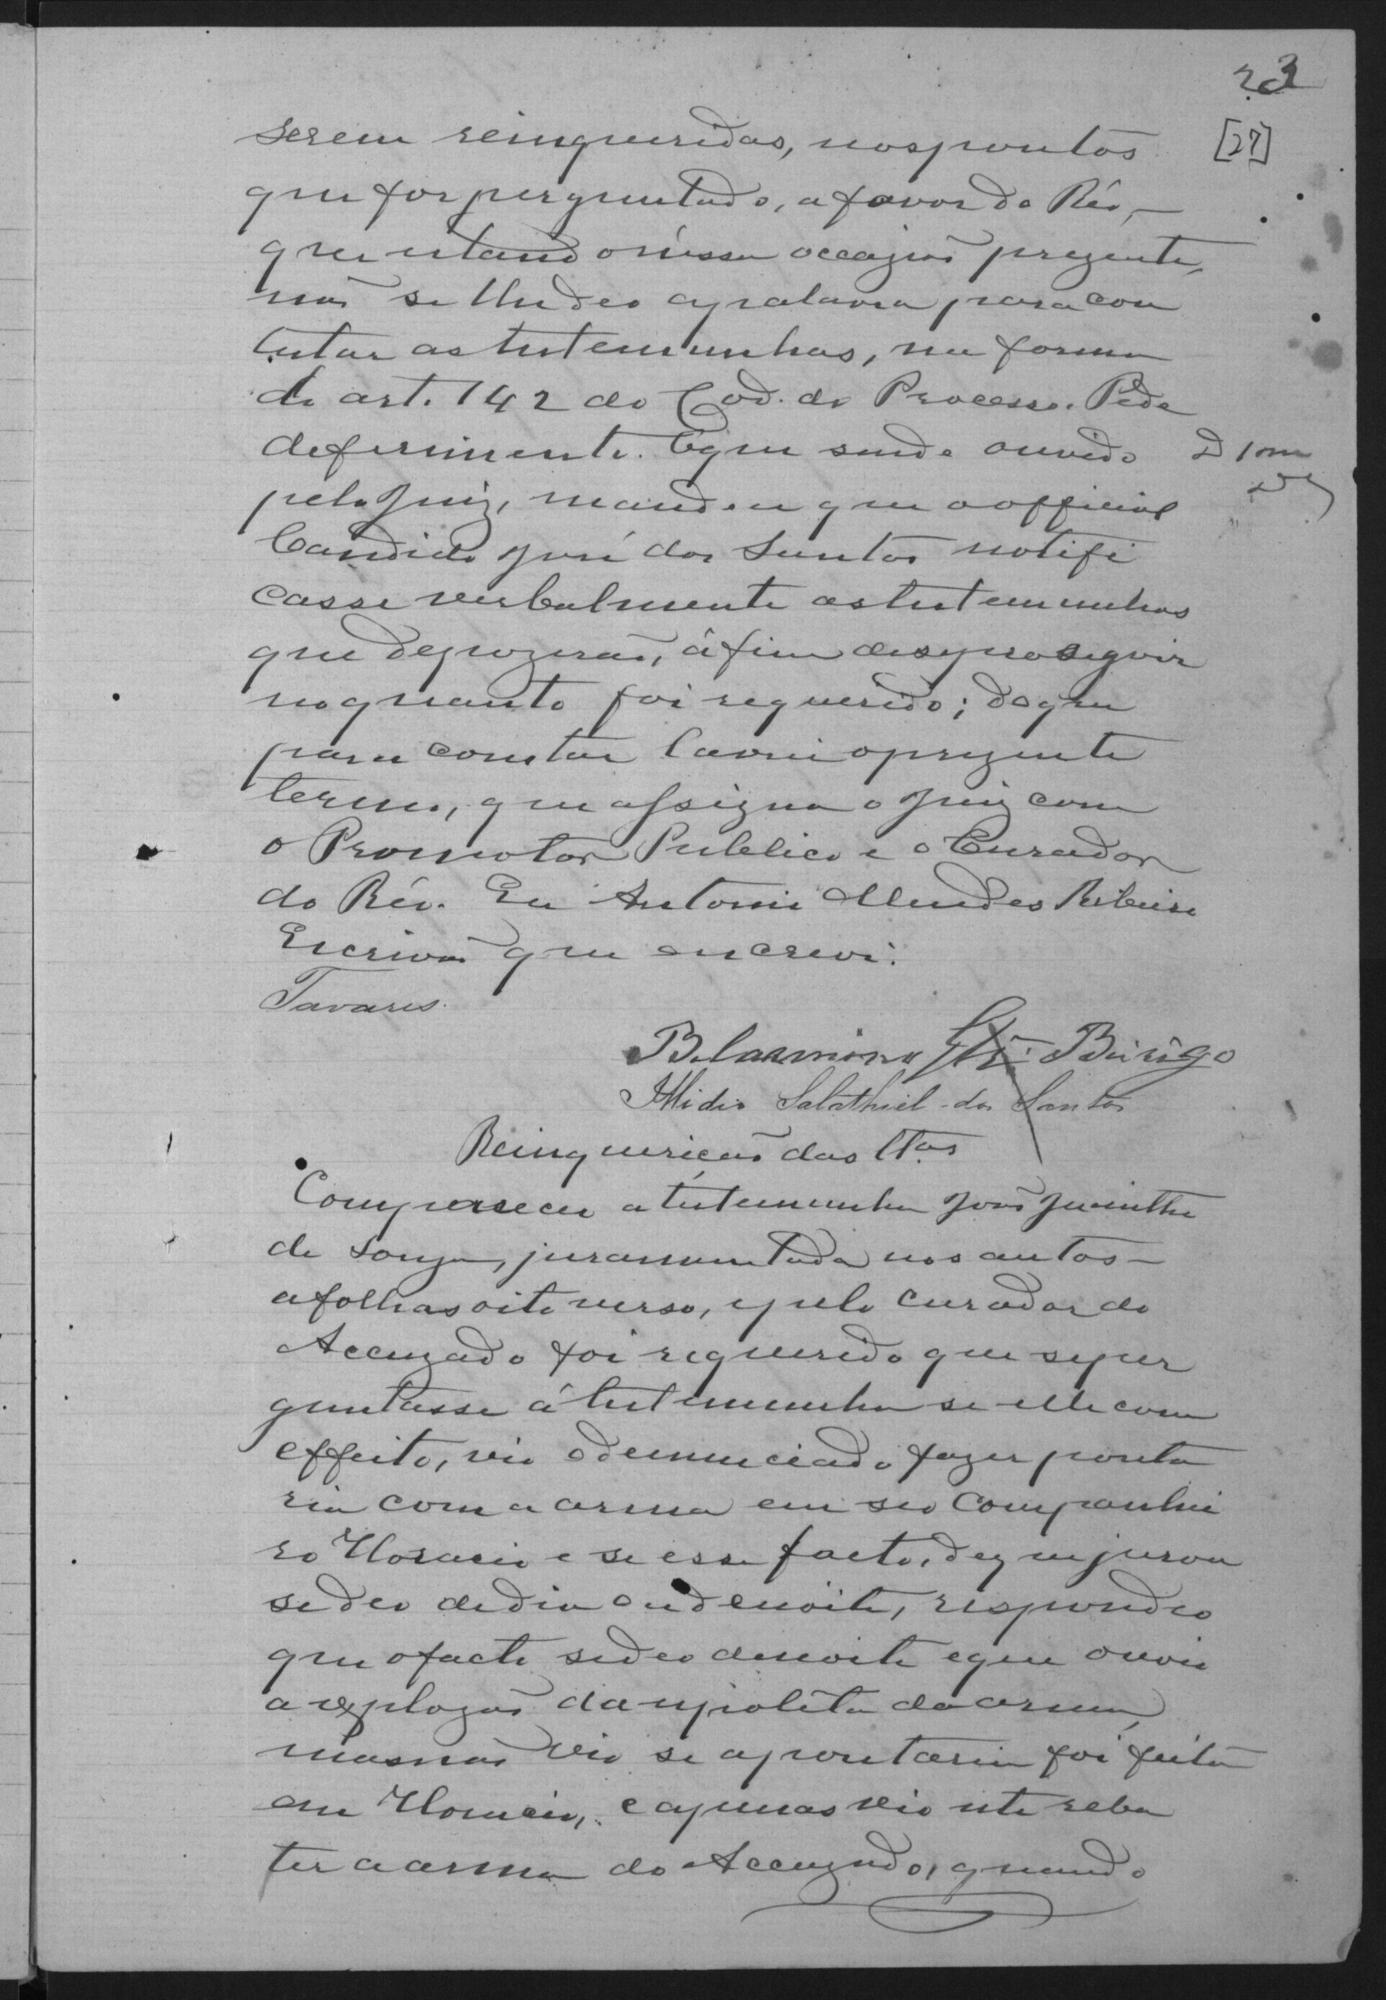 23
[27]
serem reinqueridas, nos pontos
que for perguntado, a favor do Réo,
que estando n'essa occazião prezente,
não se lhe deo a palavra para con
testar as testemunhas, na forma
do art. 142 do Cod. do Processo. Pede
deferimento. E que sendo ouvido
pelo Juiz, mandou que o official
Candido José dos Santos notifi
casse verbalmente as testemunhas
que depozerão, á fim de se proseguir
no quanto foi requerido; do que
para constar lavrei o prezente
termo, que assigna o Juiz com
o Promotor Publico e o Curador
do Réo. Eu Antonio Mendes Ribeiro
Escrivão que escrevi.
Tavares.
Belarmino José Búrigo
Illidio Salathiel dos Santos
Reinquerição das ttas
Compareceu a testemunha João Jacintho
de Souza, juramentada nos autos
a folhas oito verso, e pelo curador do
Accuzado foi requerido que se per
guntasse á testemunha se elle com
effeito, vio o denunciado fazer ponta
ria com a arma em seo companhei
ro Horacio e se esse facto, de que jurou
se deo de dia ou de noite, respondeo
que o facto se deo de noite e que ouvio
a explozão da espoleta da arma,
mas não vio se a pontaria foi feita
em Horacio, e apenas vio este reba
ter a arma do Accuzado, quando